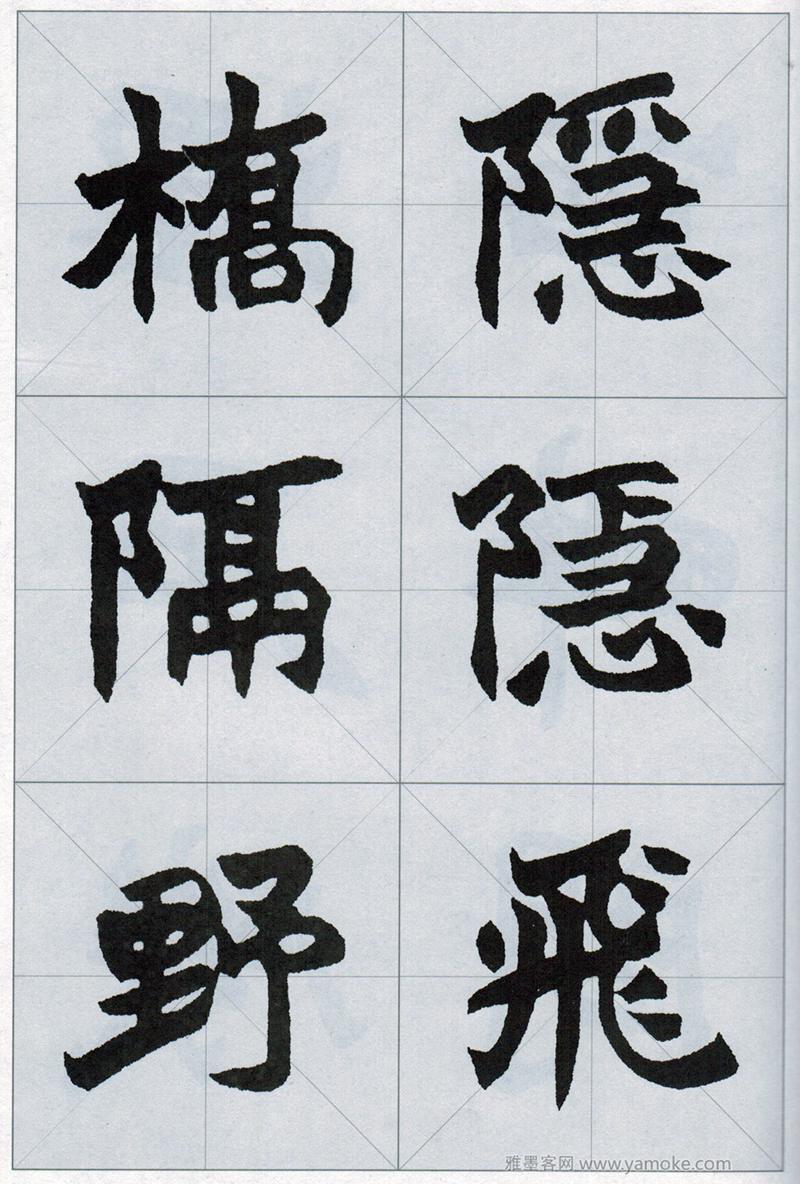 隱隱飛
橋隔野
雅墨客网 www.yamoke.com